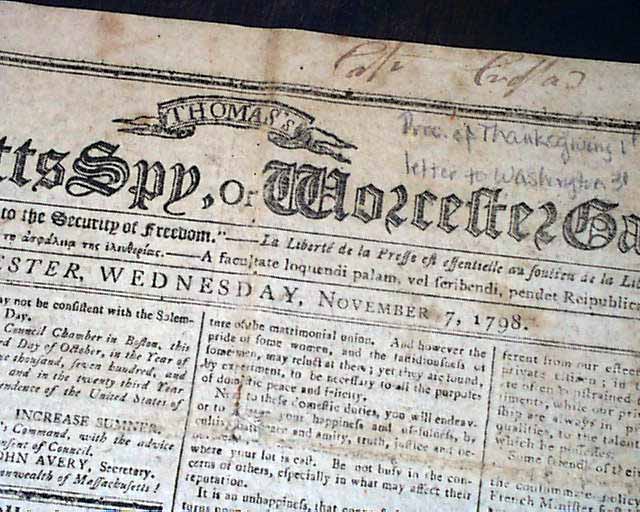 THOMAS's
Proc. of Thanksgiving 1
letter to Washington 3
tts Spy, Or Worcester Ga
to the Security of Freedom."—La Liberté de la Presse est essentielle au soutien de la Li
της ελευθερίας.—A facultate loquendi palam, vel scribendi, pendet Reipublic
ESTER, WEDNESDAY, NOVEMBER 7, 1798.
ay not be consistent with the Solem-
Day.
Council Chamber in Boston, this
rd Day of October, in the Year of
ne thousand, seven hundred, and
and in the twentieth third Year
pendence of the United States of
INCREASE SUMNER.
Command, with the advice
onsent of Council.
OHN AVERY, Secretary.
monwealth of Massachusetts!
ture of the matrimonial union. And however the
pride of some women, and the fastidiousness of
some men, may revolt at them; yet they are found,
by experiment, to be necessary to all the purposes
of domestic peace and felicity.
to these domestic duties, you will endeav-
or to your happiness and usefulness, by
peace and amity, truth, justice and
where your lot is cast. Be not busy in the con-
cerns of others, especially in what may affect their
reputation.
It is an unhappiness, that
ferent from our effec
private citizen; in
ments, while our pr
ship are always in
qualities, to the talent
which he possesses
Some friends of the
French Minister